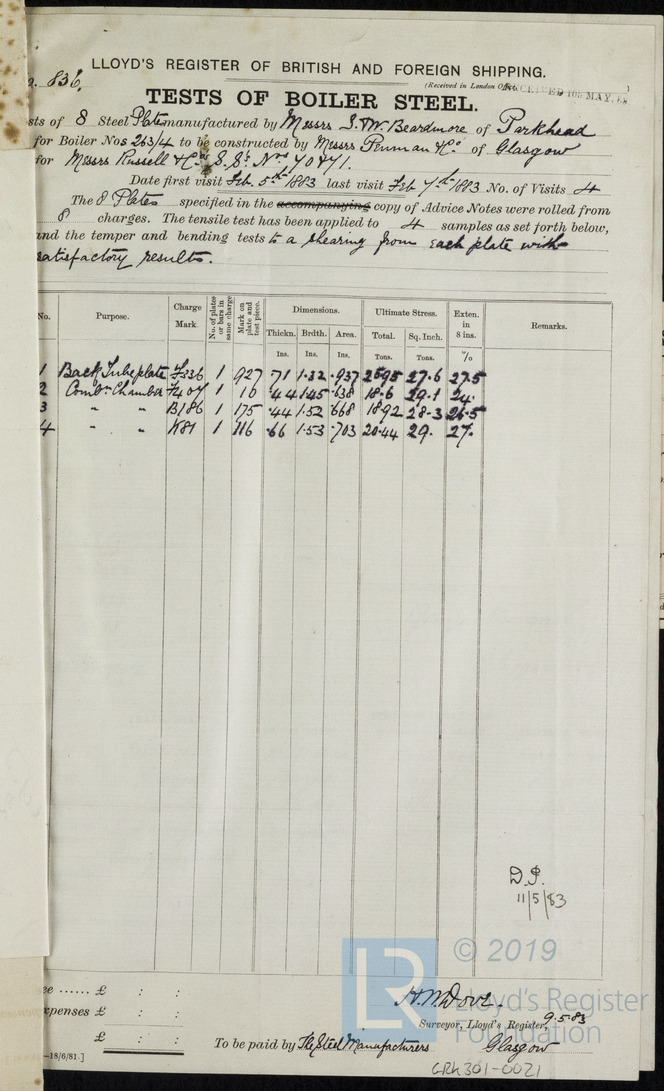 o. 836,
LLOYD'S REGISTER OF BRITISH AND FOREIGN SHIPPING.
(Received in London Office
RECEIVED 10 MAY. 83
TESTS OF BOILER STEEL.
sts of 8 Steel Plates manufactured by Messrs & W. Beardmore of Parkhead
for Boiler Nos 263/4 to be constructed by Messrs Penman & Co. of Glasgow
for Messrs Russell & Co's S.S. Nos 70 &71.
Date first visit Feb. 5th 1883 last visit Feb 7th 1883 No. of Visits 4
The 8 Plates specified in the accompanying copy of Advice Notes were rolled from
8 charges. The tensile test has been applied to 4 samples as set forth below,
and the temper and bending tests to a shearing from each plate with
satisfactory results.
No. Purpose. Charge Mark. No. of plates or bars in same charge Mark on plate and test piece. Dimensions. Ultimate Stress. Exten. in 8 ins. Remarks.
Thickn. Brdth. Area. Total. Sq. Inch.
Ins. Ins. Ins. Tons. Tons. %
1 Back Tubeplate F336 1 927 .71 1.32 .937 25.95 27.6 27.5
2 Combn Chamber F407 1 10 .44 1.45 .638 18.6 29.1 24.
3 " " B186 1 175 .44 1.52 .668 18.92 28.3 26.5
4 " " K81 1 116 .66 1.53 .703 20.44 29. 27.
11/5/83
© 2019
LR
Lloyd's Register
Foundation
ee ...... £ : :
xpenses £ : :
£ : :
H.W. Dove.
Surveyor, Lloyd's Register,
9.5.83
—18/6/81.]
To be paid by The Steel Manufacturers
Glasgow
GRK301-0021